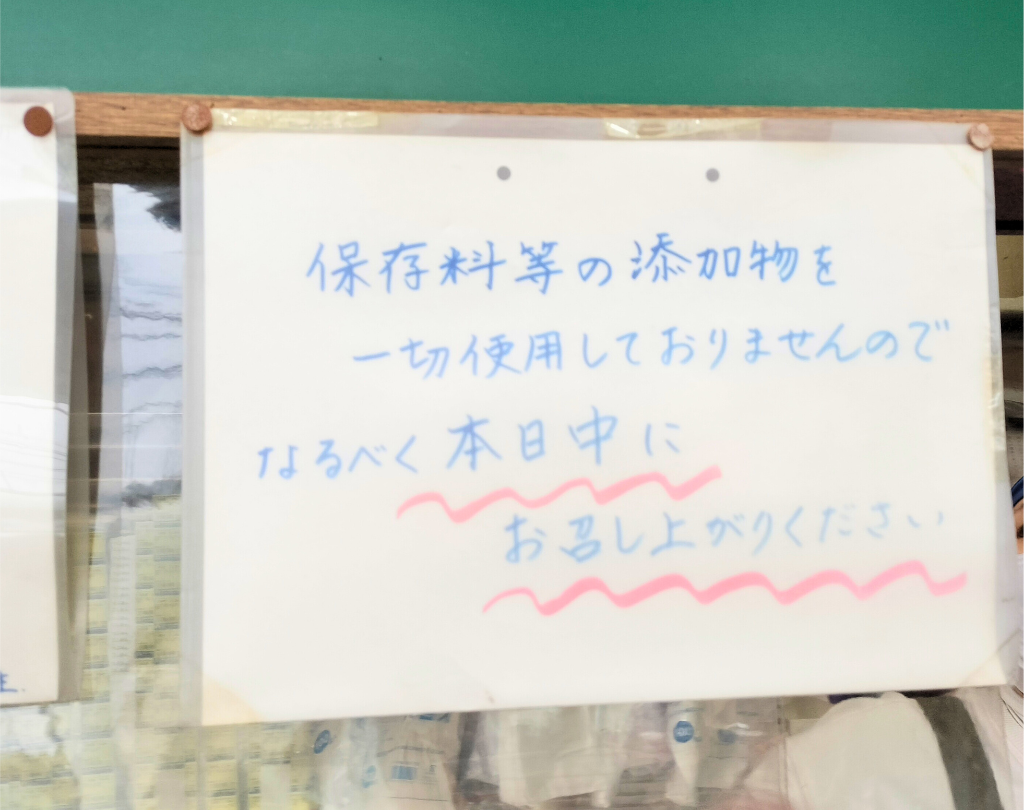 保存料等の添加物を
一切使用しておりませんので
なるべく本日中に
お召し上がりください